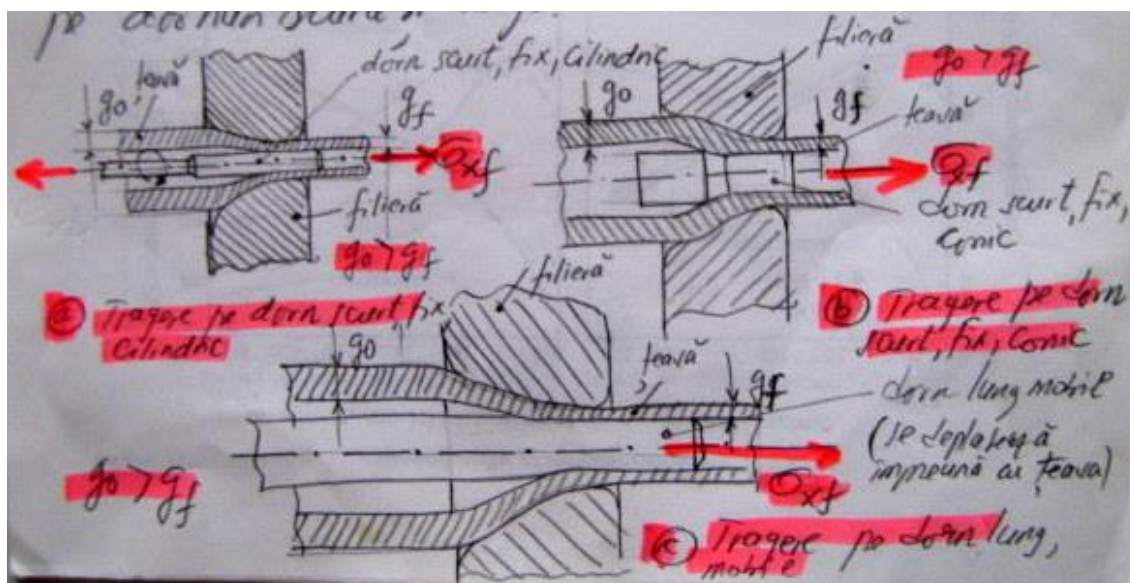 pe
dorn scurt, fix, cilindric
teavă
g₀
g_f
σ_xf
filieră
g₀ > g_f
ⓐ Tragere pe dorn scurt fix
cilindric
filieră
g₀ > g_f
g₀
g_f
teavă
σ_xf
dorn scurt, fix,
conic
ⓑ Tragere pe dorn
scurt, fix, conic
filieră
g₀
teavă
g_f
dorn lung mobil
(se deplasează
împreună cu țeava)
g₀ > g_f
σ_xf
ⓒ Tragere pe dorn lung,
mobil